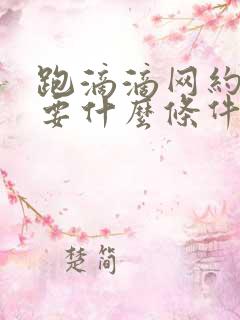 跑滴滴网約
要什麼條件
楚简